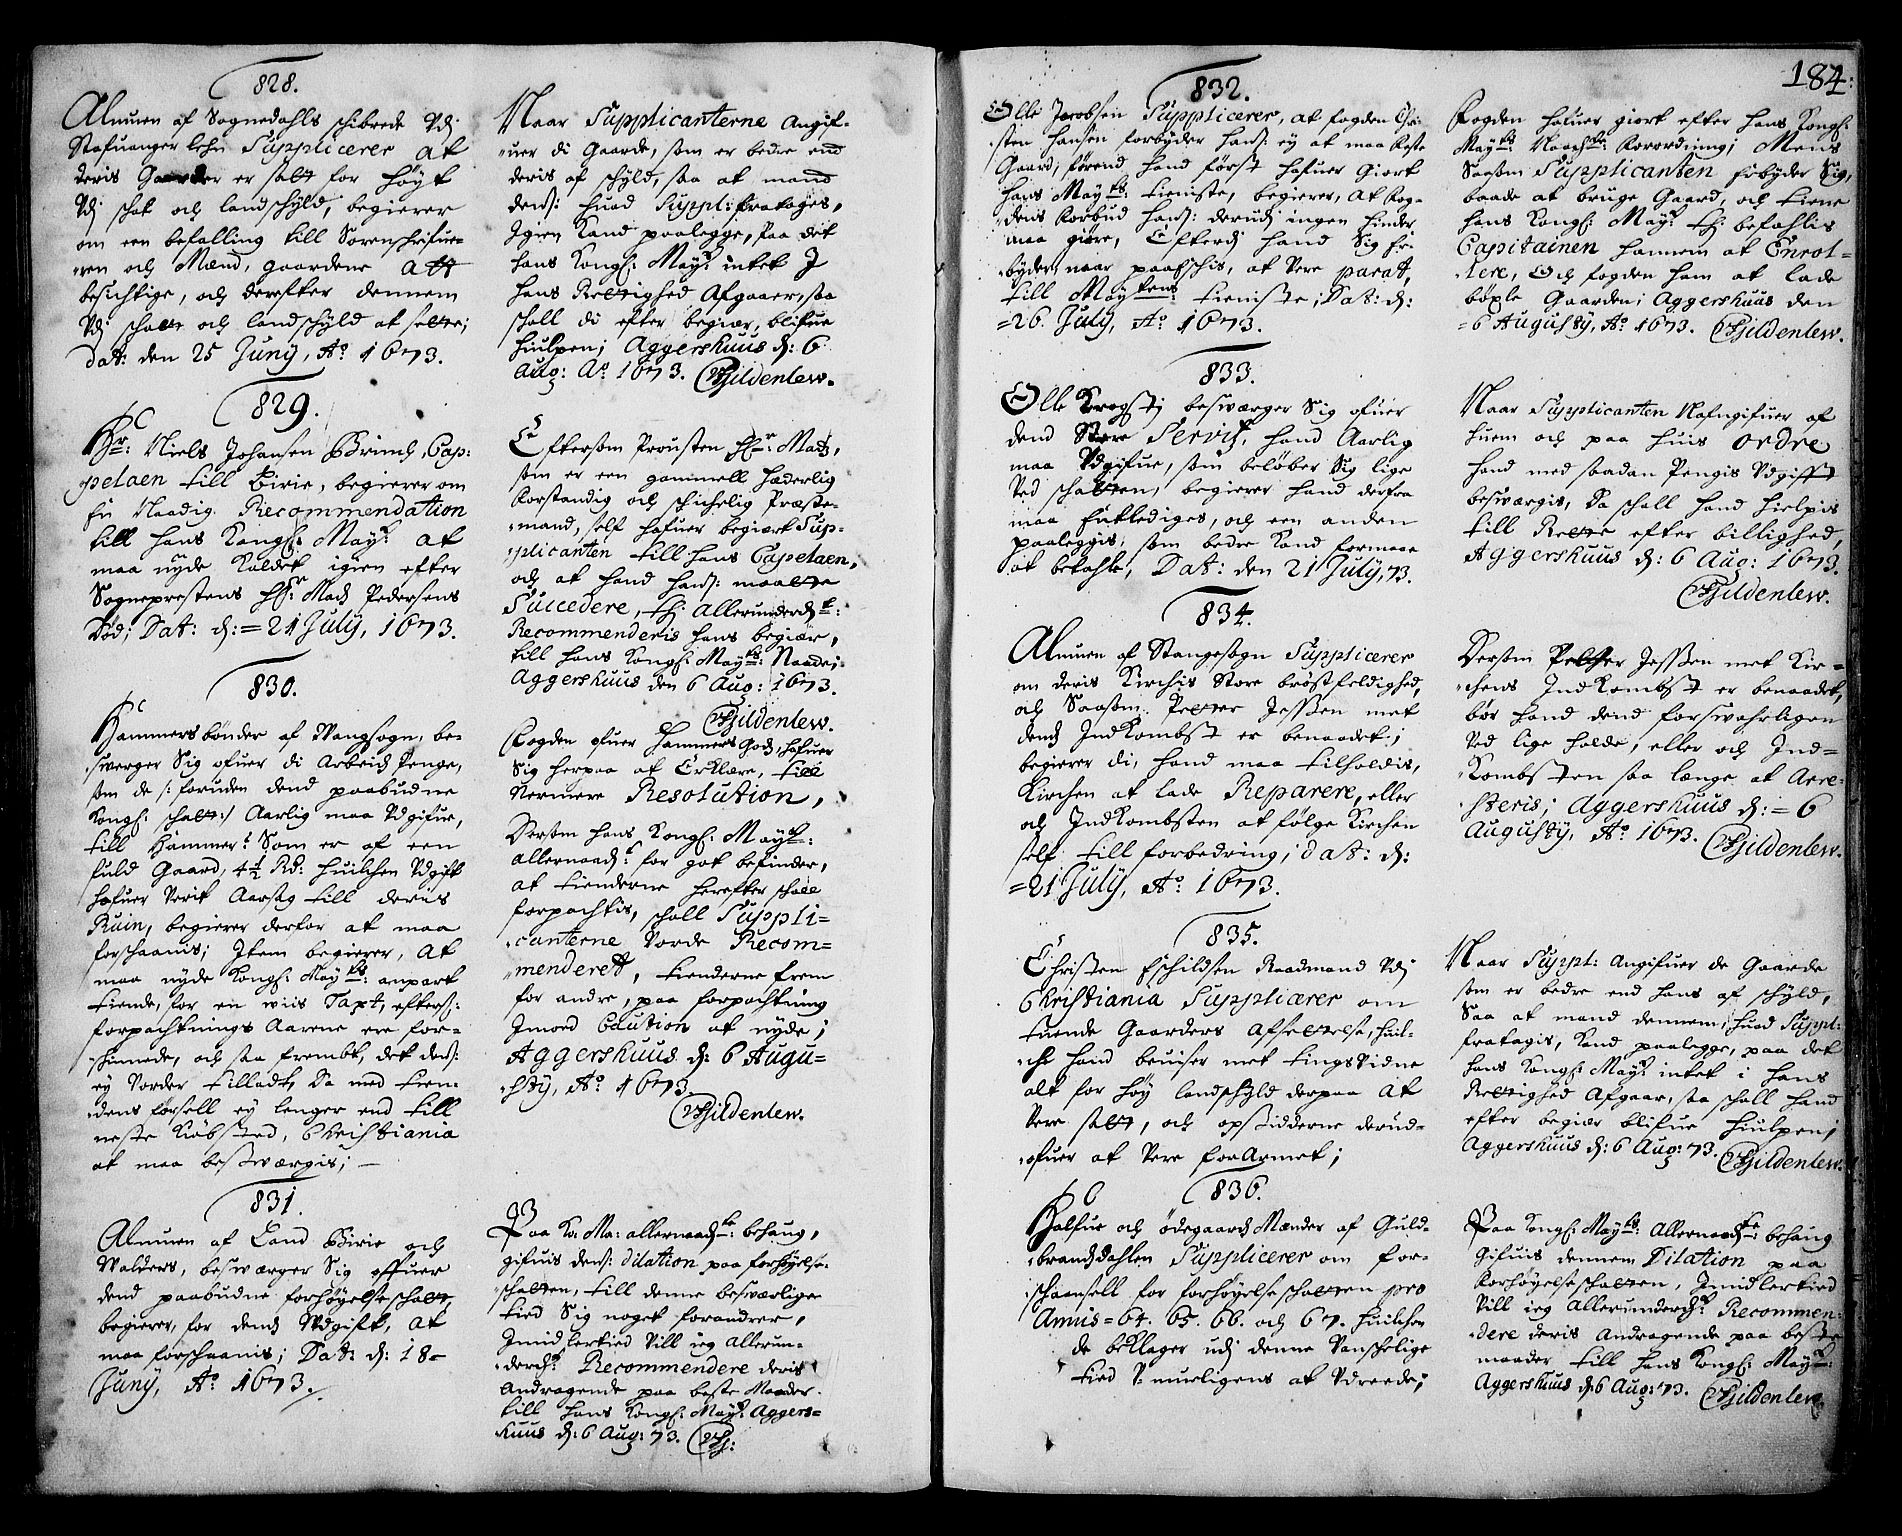 828.
Almuen af Sognedahls schibrede Vdj
Stafuanger lehn Supplicerer at
deris Gaarder er satt for høyt
Vdj schat och landschyld, begierer
om een befalling till Sorenschrifue-
ren och Mænd, gaardene att
besichtige, och derefter dennem
Vdj schatt och landschyld at sette;
Dat: den 25 Juny, Aº 1673.
Naar Supplicanterne Angif-
uer di Gaarde, som er bedre end
deris af schyld, saa at mand
dend: huad Suppl: fratages,
Igien Kand paalegge, Paa det
hans Kongl: Mayt: intet J
hans Rettighed Afgaaer, saa
schall di efter begier, blifue
hiulpen; Aggershuus d: 6
Aug: Aº 1673. Gildenlew.
829.
Hr: Niels Johansen Brinch, Cap:
pelaen till Birie, begierer om
En Naadig Recommendation
till hans Kongl: Mayt: at
maa nyde Kaldet igien efter
Sogneprestens Hr: Mads Pedersens
Død; Dat: d:=21 July, 1673.
Eftersom Prousten Hr: Mads,
som er een gammell hæderlig
Forstandig och schichelig Præste-
mand, self hafuer begiert Sup-
plicanten till hans Capelaen,
och at hand hand: maatte
Succedere, thj Allerunderdt:
Recommenderis hans begiær,
till hans Kongl: Mayts: Naade;
Aggershuus den 6 Aug: 1673.
Gildenlew.
830.
Hammers bønder af Wangsogn, be-
swerger Sig ofuer di Arbeids Penge,
som de /: foruden dend paabudne
Kongl: schatt :/ Aarlig maa Vdgifue,
till Hammer: Som er af een
fuld Gaard, 4½ Rd: huilchen Vdgift
hafuer Verit Aarsag till deris
Ruin, begierer derfor at maa
forschaanis; Item begierer, at
maa nyde Kongl: Mayts: anpart
tiende, for en wiis Taxt, efters:
forpachtnings Aarene ere for-
schinnede, och saa frembt, det dend:
ey Vorder tilladt, Da med tien-
dens førsell ey lenger end till
neste Kiøbsted, Christiania
at maa besværgis; —
Fogden ofuer Hammers Gods, hafuer
Sig herpaa at Erklære, till
Nermere Resolution,
Dersom hans Kongl: Mayt:
allernaadt: for got befinder,
at tienderne herefter schall
forpachtis, schall Suppli=
canterne Vorde Recom=
menderet, tienderne frem
for andre, paa forpachtning
Imod Caution at nyde;
Aggershuus d: 6 Augu=
sty, Aº 1673
Gildenlew.
831.
Almuen af Land Birie och
Walders, beswærger Sig offuer
dend paabudne forhøyelse schatt,
begierer, for dend Vdgift, at
maa forschaanis; Dat: d: 18-
Juny, Aº 1673.
Paa Ko: Ma: allernaadte: behaug,
gifuis dend: dilation paa forhøyelse-
schatten, till denne besværlige
tied Sig noget forandrer,
Imidlertied Vill ieg Allerun-
derdt: Recommendere deris
Andragende paa beste Maader
till hans Kongl: Mayt: Aggers=
huus d: 6 Aug: 73. G:
184:
832.
Olle Jacobsen Supplicerer, at fogden Chri-
sten Hansen forbyder hand: ey at maa feste
Gaard, førend hand først hafuer Giort
hans Mayts: tieniste, begierer, at Fog-
dens Forbud hand: derudj ingen hinder
maa giøre, Efterdj hand Sig fri
byder, naar paaeschis, at Vere parat,
till Maytens: tieniste; Dat: d:
=26. July, Aº 1673.
Fogden hafuer giort efter hans Kongl:
Mayts: Naadste: Forordning; Mens
Saasom Supplicanten tilbyder Sig,
baade at bruge Gaard, och tiene
hans Kongl: Mayt: thj befahlis
Capitainen hannem at Enrol-
lere, Och fogden ham at lade
bøxle Gaarden; Aggershuus den
=6 Augusty, Aº 1673. Gildenlew.
833.
Olle Krogstj beswærger Sig ofuer
dend Store Servis, hand Aarlig
maa Vdgifue, som beløber Sig lige
Ved schatten, begierer hand derfra
maa Entlediges, och een anden
paaleggis, som bedre Kand formaae
at betahle, Dat: den 21 July, 73.
Naar Supplicanten Nafngifuer af
huem och paa huis ordre
hand med saadan Pengis Vdgifft
besværgis, Da schall hand hielpis
till Rette efter billighed,
Aggershuus d: 6 Aug: 1673.
Gildenlew.
834.
Almuen af Stangesogn Supplicerer
om deris Kirchis Store brøstfeldighed,
och Saasom Petter Jessen met
dends Indkombst er benaadet;
begierer di, hand maa tilholdis,
Kirchen at lade Reparere, eller
och Indkombsten at følge Kirchen
self till forbedring; dat: d:
=21 July, Aº 1673.
Dersom Petter Jessen met Kir=
chens Indkombst er benaadet,
bør hand dend forswahrligen
Ved lige holde, eller och Ind=
Kombsten saa længe at Arre-
steris; Aggershuus d:=6
Augusty, Aº 1673. Gildenlew.
835.
Christen Eschildsen Raadmand Vdj
Christiania Supplicerer om
tuende Gaarders Afsettelse, huil-
che hand beuiser met tingsvidne
alt for høy landschyld derpaa at
Vere satt, och opsidderne derud-
ofuer at Vere forArmet;
Naar Suppl: Angifuer de Gaarde
som er bedre end hans af schyld,
Saa at mand dennem, huad Suppl:
fratagis, Kand paalegge, paa det
hans Kongl: Mayt: intet i hans
Rettighed Afgaar, saa schall hand
efter begier blifue hiulpen;
Aggershuus d: 6 Aug: 73. Gildenlew.
836.
Halfue och ødegaards Mænder af Guld-
brandsdahlen Supplicerer om for-
schaansell for forhøyelse schatten pro
Annis=64. 65. 66. och 67. huilchen
de beklager udj denne Vanschelige
tied V-mueligens at Vdreede;
Paa Kongl: Mayts: Allernaadste: behaug
Gifuis dennem Dilation paa
Forhøyelse schatten, Imidlertied
Vill ieg Allerunderdt: Recommen-
dere deris Andragende paa beste
maader till hans Kongl: Mayt:
Aggershuus d: 6 Aug: 73. Gildenlew.